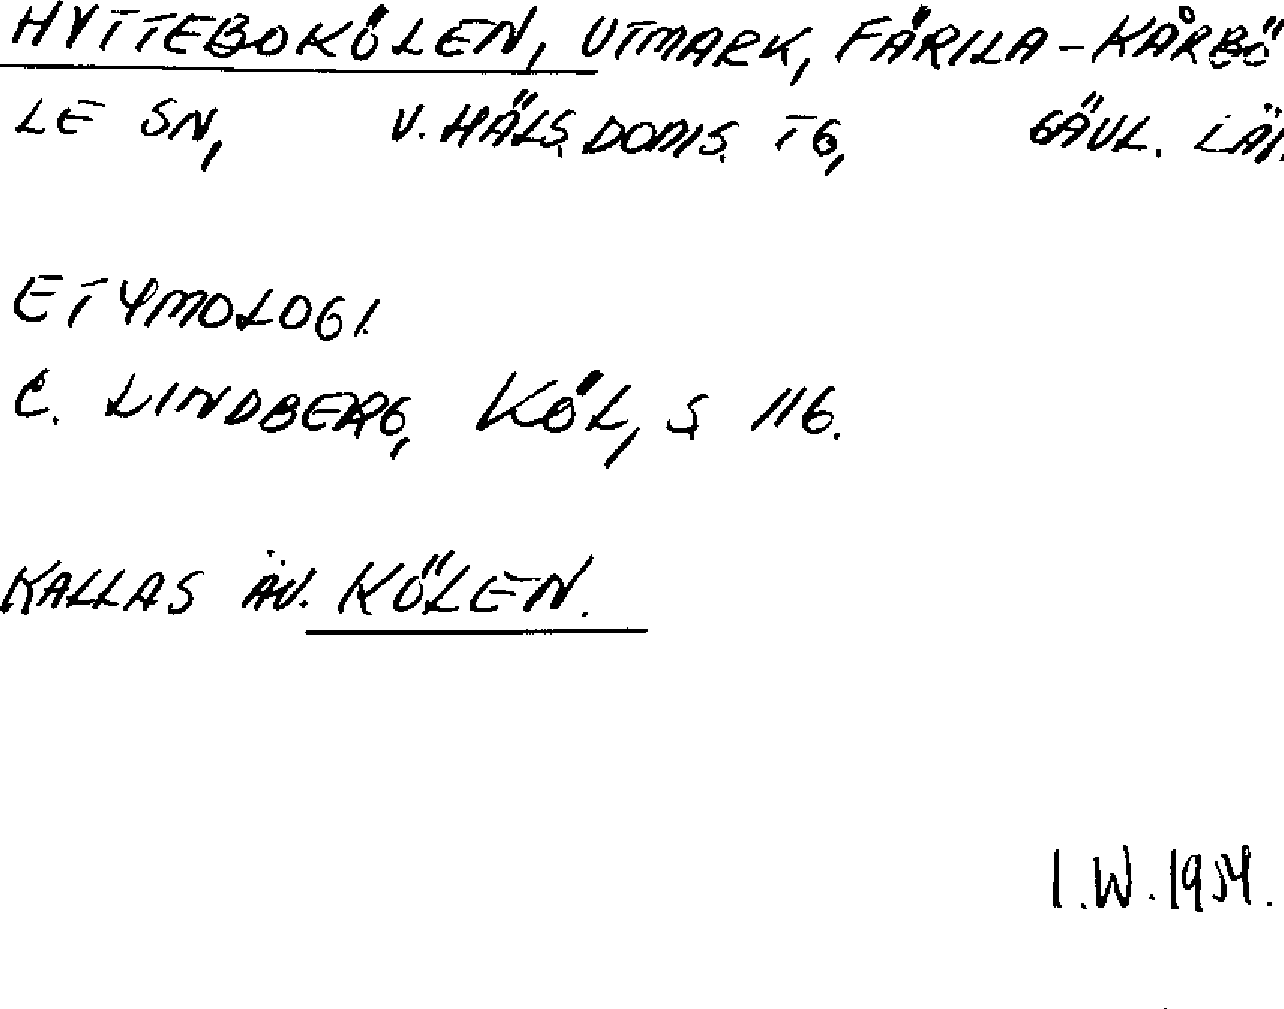 HYTTEBOKÖLEN, UTMARK, FÄRILA-KÅRBÖ
LE SN, V. HÄLS. DOMS. TG, GÄVL. LÄN.
ETYMOLOGI.
C. LINDBERG, KÖL, S. 116.
KALLAS ÄV. KÖLEN.
I.W. 1954.